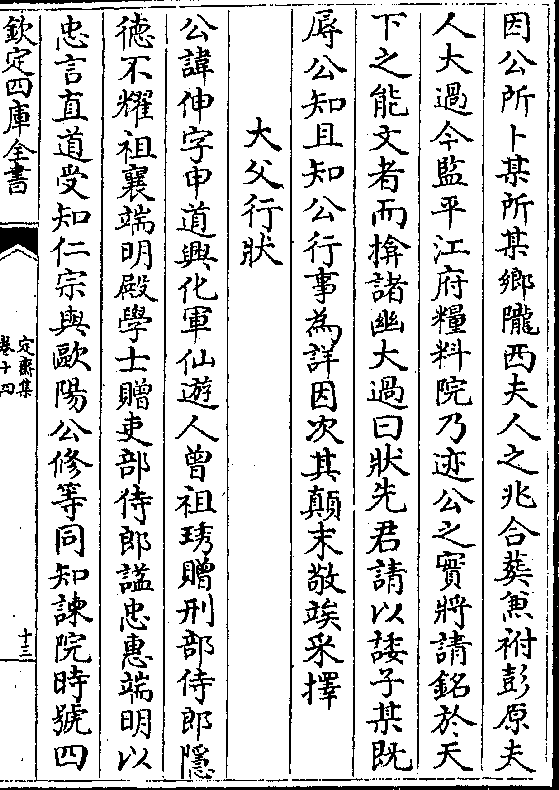 因公所卜某所某鄉隴西夫人之兆合葬焉祔彭原夫
人大過今監平江府糧料院乃迹公之實將請銘於天
下之能文者而揜諸幽大過曰狀先君請以諉子某既
辱公知且知公行事為詳因次其顛末敬竢采擇
大父行狀
公諱伸字申道興化軍仙遊人曾祖琇贈刑部侍郎隱
徳不耀祖襄端明殿學士贈吏部侍郎諡忠惠端明以
忠言直道受知仁宗與歐陽公修等同知諫院時號四
欽定四庫全書
定齋集
卷十四
十三